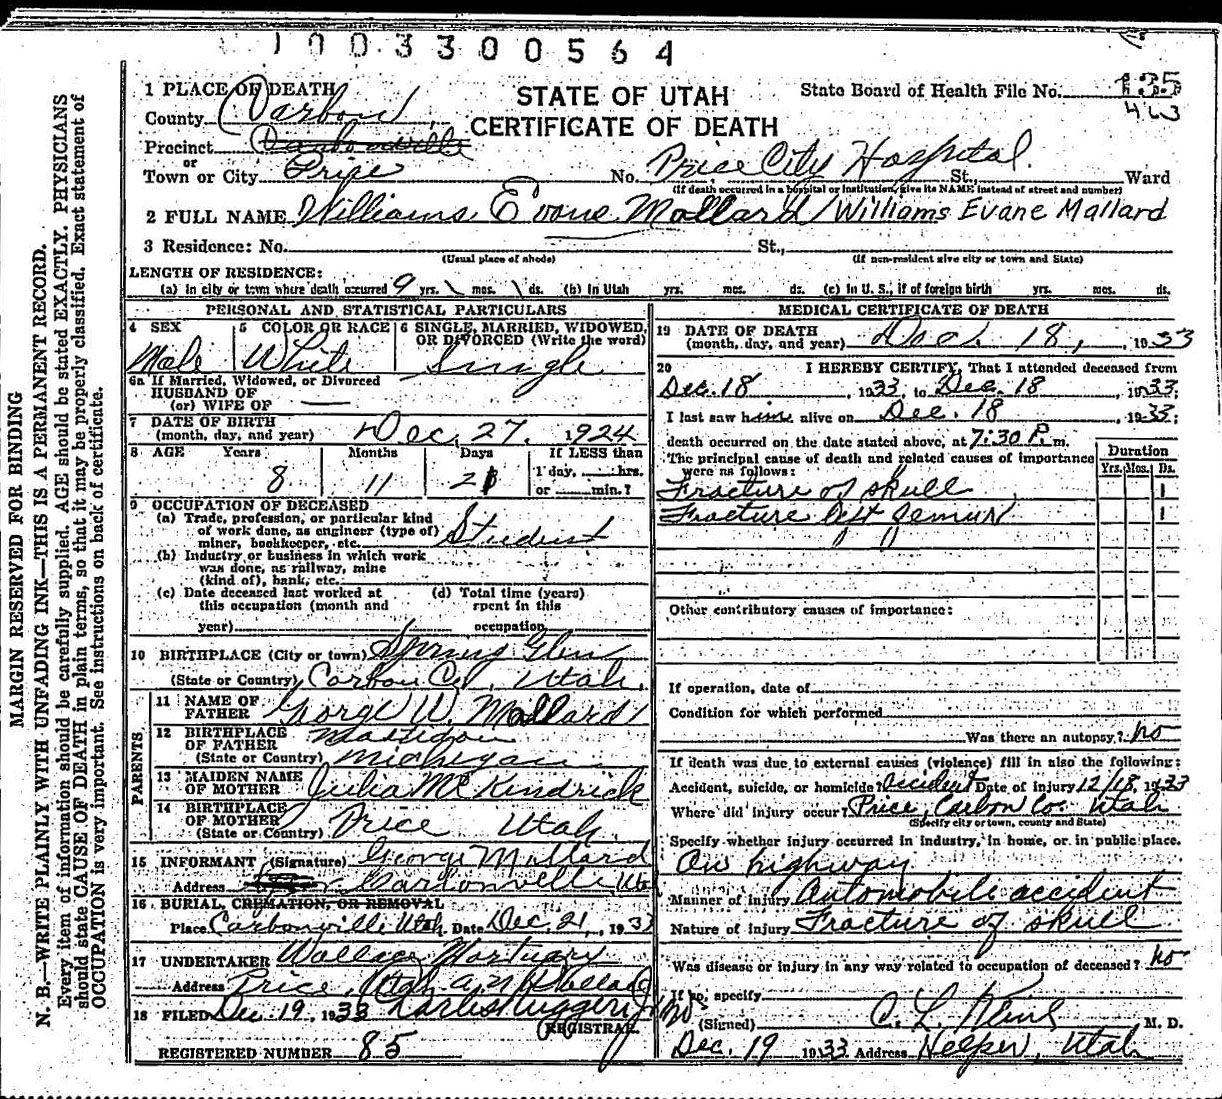 1003300564
1 PLACE OF DEATH
STATE OF UTAH
CERTIFICATE OF DEATH
State Board of Health File No. 135
443
County Carbon
Precinct Carbonville
or
Town or City Price No. Price City Hospital St., Ward
(If death occurred in a hospital or institution, give its NAME instead of street and number)
2 FULL NAME Williams Evane Mallard / Williams Evane Mallard
3 Residence: No. St.,
(Usual place of abode) (If non-resident give city or town and State)
LENGTH OF RESIDENCE:
(a) In city or town where death occurred 9 yrs. \ mos. \ ds. (b) In Utah yrs. mos. ds. (c) In U. S., if of foreign birth yrs. mos. ds.
PERSONAL AND STATISTICAL PARTICULARS
4 SEX 5 COLOR OR RACE 6 SINGLE, MARRIED, WIDOWED,
OR DIVORCED (Write the word)
Male White Single
6a If Married, Widowed, or Divorced
HUSBAND OF
(or) WIFE OF —
7 DATE OF BIRTH
(month, day, and year) Dec. 27. 1924
8 AGE Years Months Days If LESS than
8 11 21 1 day, hrs.
or min.?
9 OCCUPATION OF DECEASED
(a) Trade, profession, or particular kind
of work done, as engineer (type of)
miner, bookkeeper, etc. Student
(b) Industry or business in which work
was done, as railway, mine
(kind of), bank, etc.
(c) Date deceased last worked at
this occupation (month and
year)
(d) Total time (years)
spent in this
occupation
10 BIRTHPLACE (City or town) Spring Glen
(State or Country) Carbon Co. Utah.
PARENTS
11 NAME OF
FATHER George W. Mallard
12 BIRTHPLACE
OF FATHER
(State or Country) Michegan
13 MAIDEN NAME
OF MOTHER Julia McKindrick
14 BIRTHPLACE
OF MOTHER
(State or Country) Price Utah.
15 INFORMANT (Signature) George Mallard
Address Carbonville, Ut
16 BURIAL, CREMATION, OR REMOVAL
Place Carbonville Utah Date Dec 21, 1933
17 UNDERTAKER Wallace Mortuary
Address Price, Utah
18 FILED Dec 19, 1933
(REGISTRAR.
REGISTERED NUMBER 85
MEDICAL CERTIFICATE OF DEATH
19 DATE OF DEATH
(month, day, and year) Dec. 18, 1933
20 I HEREBY CERTIFY, That I attended deceased from
Dec. 18, 1933, to Dec. 18, 1933;
I last saw him alive on Dec. 18 1933;
death occurred on the date stated above, at 7:30 P. m.
The principal cause of death and related causes of importance
were as follows:
Duration
Yrs. Mos. Ds.
Fracture of skull 1
Fracture left femur 1
Other contributory causes of importance:
If operation, date of
Condition for which performed
Was there an autopsy? no
If death was due to external causes (violence) fill in also the following:
Accident, suicide, or homicide? Accident Date of injury 12/18, 1933
Where did injury occur? Price, Carbon Co. Utah
(Specify city or town, county and State)
Specify whether injury occurred in industry, in home, or in public place.
On highway
Manner of injury Automobile accident
Nature of injury Fracture of skull
Was disease or injury in any way related to occupation of deceased? no
If so, specify
(Signed) C. L. M. D.
Dec. 19 1933 Address Helper, Utah
MARGIN RESERVED FOR BINDING
N. B.—WRITE PLAINLY WITH UNFADING INK—THIS IS A PERMANENT RECORD.
Every item of information should be carefully supplied. AGE should be stated EXACTLY. PHYSICIANS
should state CAUSE OF DEATH in plain terms, so that it may be properly classified. Exact statement of
OCCUPATION is very important. See instructions on back of certificate.